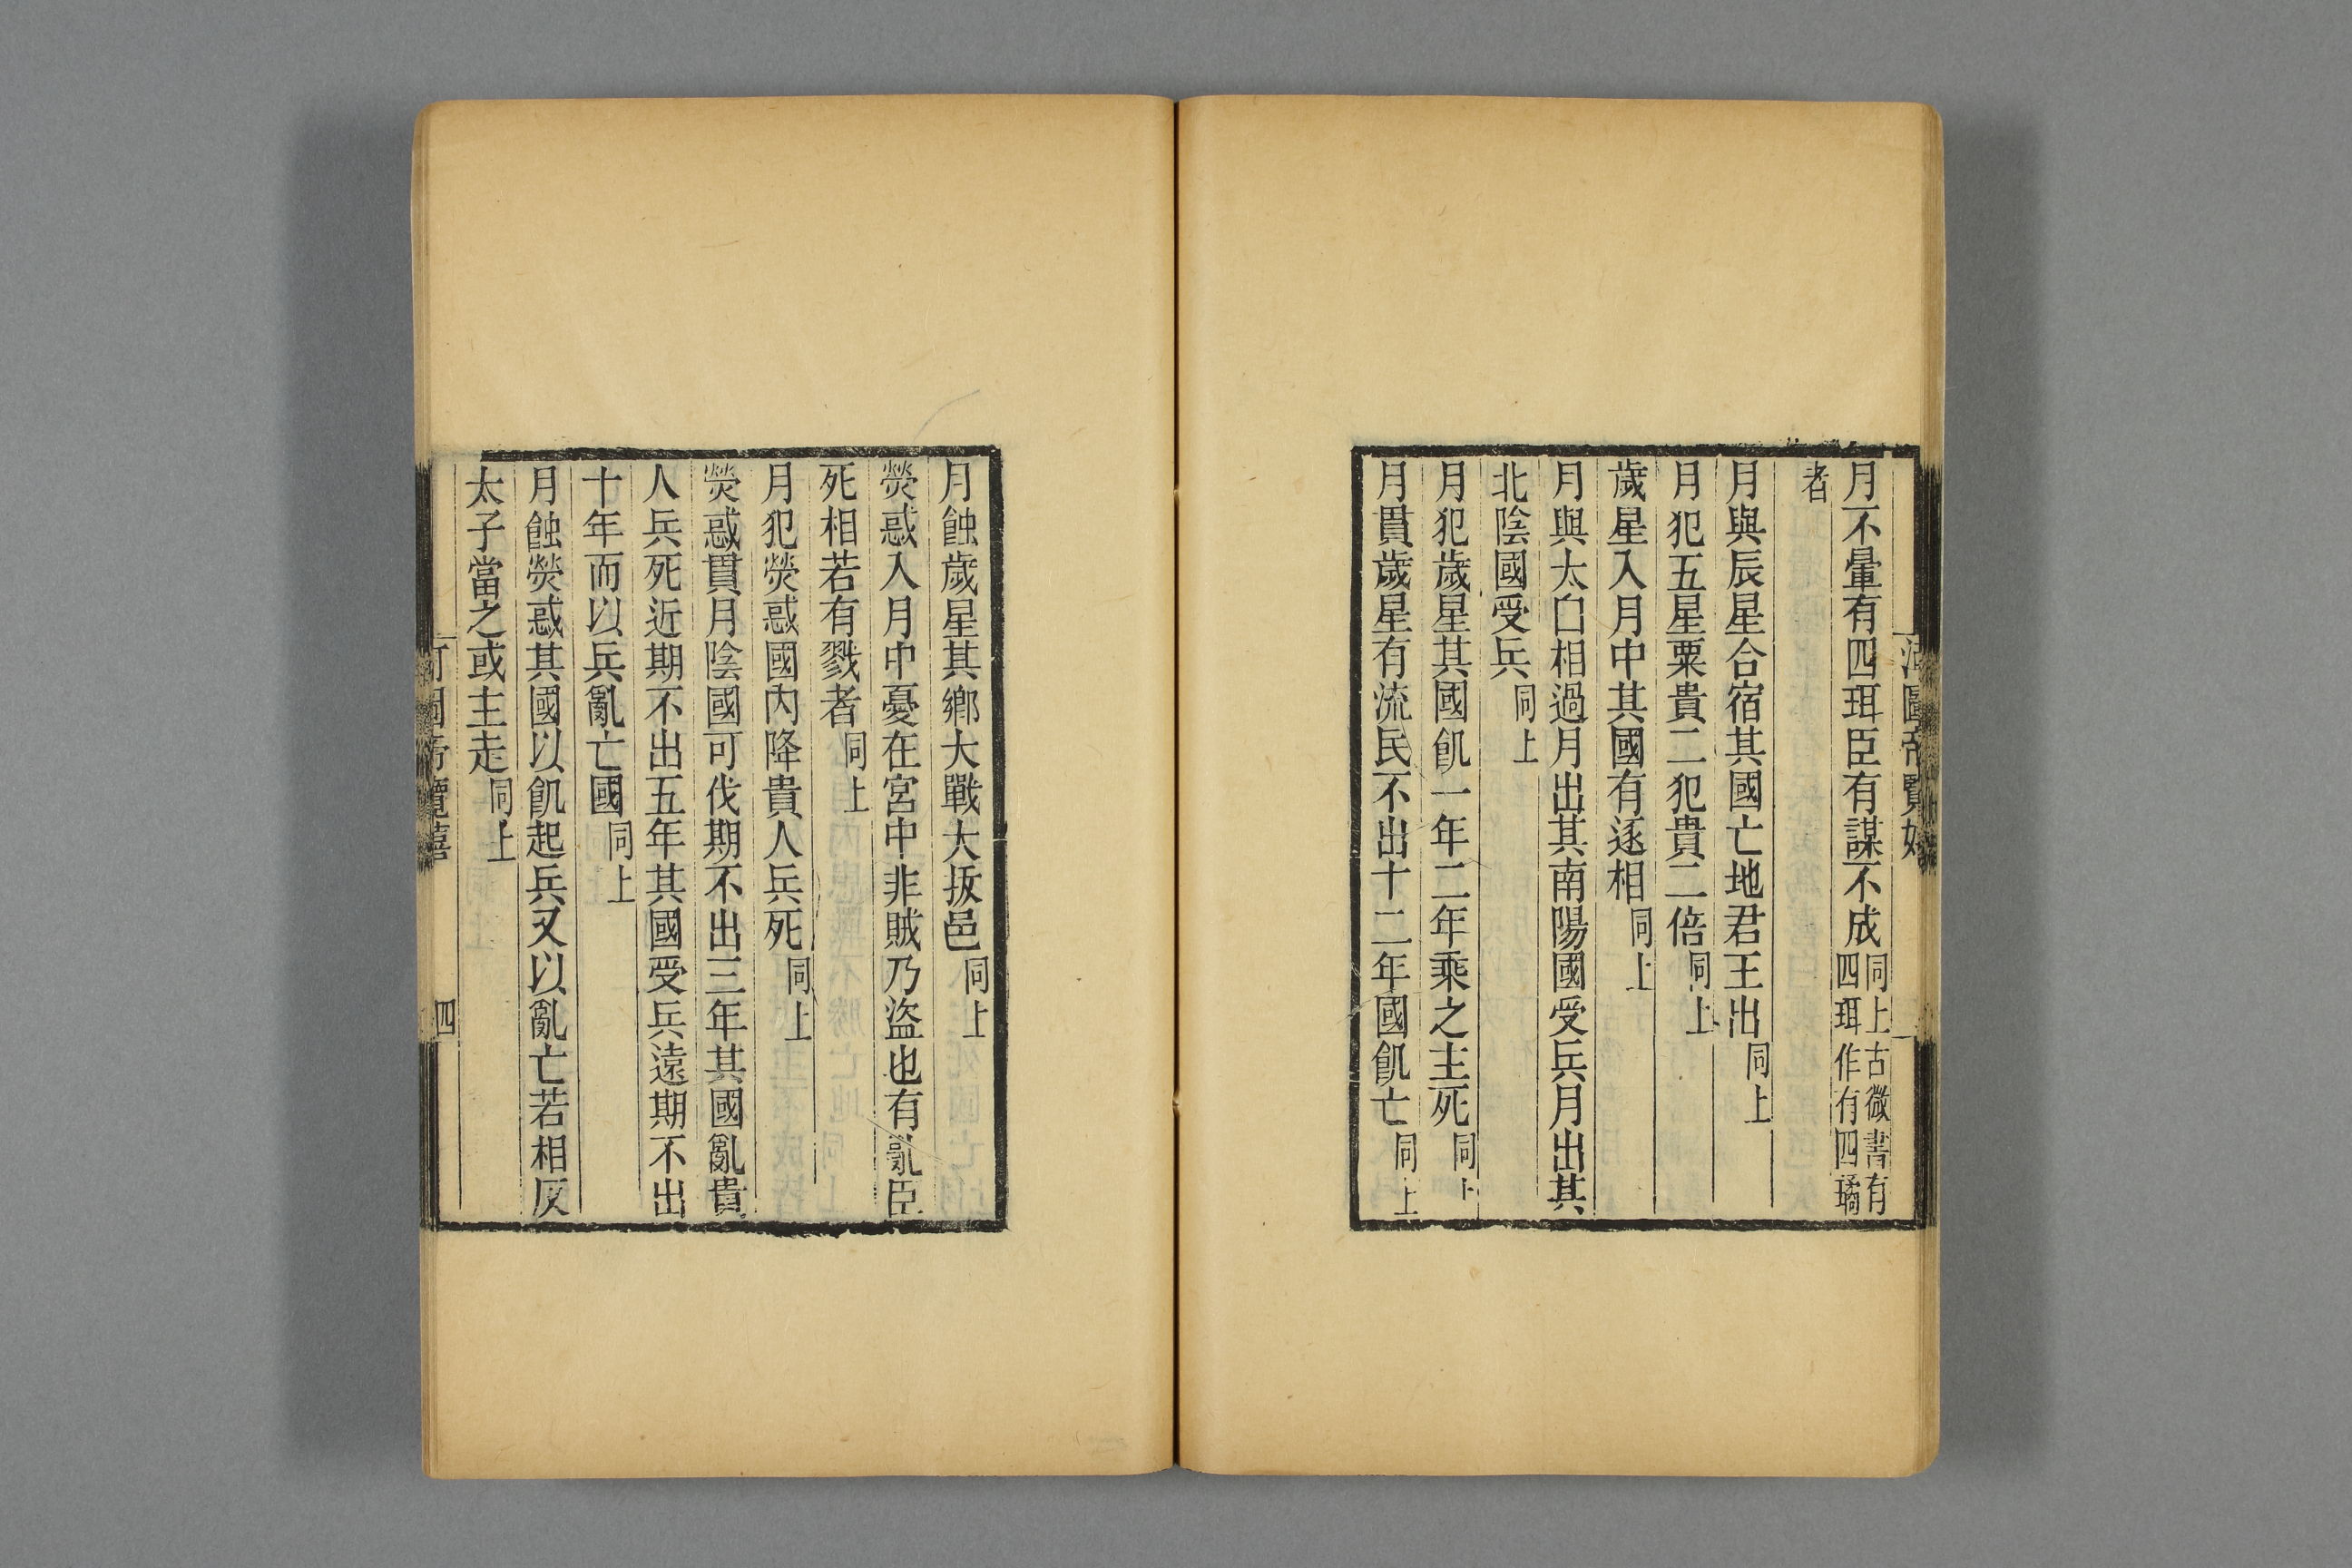 河圖帝覽嬉
月不暈有四珥臣有謀不成同上古微書有四珥作有四璚
者
月與辰星合宿其國亡地君王出同上
月犯五星粟貴二犯貴二倍同上
歲星入月中其國有逐相同上
月與太白相過月出其南陽國受兵月出其
北陰國受兵同上
月犯歲星其國飢一年二年乘之主死同上
月貫歲星有流民不出十二年國飢亡同上
月蝕歲星其鄉大戰大扳邑同上
熒惑入月中憂在宮中非賊乃盜也有亂臣
死相若有戮者同上
月犯熒惑國內降貴人兵死同上
熒惑貫月陰國可伐期不出三年其國亂貴
人兵死近期不出五年其國受兵遠期不出
十年而以兵亂亡國同上
月蝕熒惑其國以飢起兵又以亂亡若相反
太子當之或主走同上
河圖帝覽嬉 四